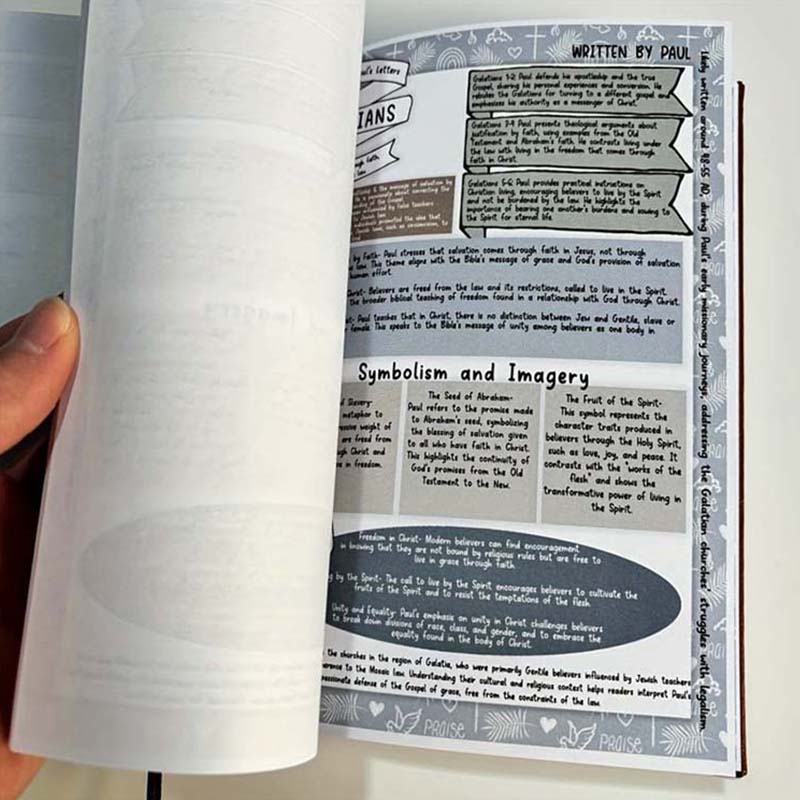 WRITTEN BY PAUL
Paul's Letters
IANS
through faith
law
Galatians 1-2: Paul defends his apostleship and the true
Gospel, sharing his personal experiences and conversion. He
rebukes the Galatians for turning to a different gospel and
emphasizes his authority as a messenger of Christ.
Galatians 3-4: Paul presents theological arguments about
justification by faith, using examples from the Old
Testament and Abraham's faith. He contrasts living under
the law with living in the freedom that comes through
faith in Christ.
Galatians 5-6: Paul provides practical instructions on
Christian living, encouraging believers to live by the Spirit
and not be burdened by the law. He highlights the
importance of bearing one another's burdens and sowing to
the Spirit for eternal life.
the message of salvation by
is passionate about correcting the
of the Gospel
by false teachers
Jewish law.
individuals promoted the idea that
Jewish laws, such as circumcision, to
by Faith- Paul stresses that salvation comes through faith in Jesus, not through
law. This theme aligns with the Bible's message of grace and God's provision of salvation
human effort.
Christ- Believers are freed from the law and its restrictions, called to live in the Spirit.
the broader biblical teaching of freedom found in a relationship with God through Christ.
Paul teaches that in Christ, there is no distinction between Jew and Gentile, slave or
female. This speaks to the Bible's message of unity among believers as one body in
Symbolism and Imagery
of Slavery-
metaphor to
weight of
are freed from
Christ and
in freedom.
The Seed of Abraham-
Paul refers to the promise made
to Abraham's seed, symbolizing
the blessing of salvation given
to all who have faith in Christ.
This highlights the continuity of
God's promises from the Old
Testament to the New.
The Fruit of the Spirit-
This symbol represents the
character traits produced in
believers through the Holy Spirit,
such as love, joy, and peace. It
contrasts with the "works of the
flesh" and shows the
transformative power of living in
the Spirit.
Freedom in Christ- Modern believers can find encouragement
in knowing that they are not bound by religious rules but are free to
live in grace through faith.
by the Spirit- The call to live by the Spirit encourages believers to cultivate the
fruits of the Spirit and to resist the temptations of the flesh.
Unity and Equality- Paul's emphasis on unity in Christ challenges believers
to break down divisions of race, class, and gender, and to embrace the
equality found in the body of Christ.
the churches in the region of Galatia, who were primarily Gentile believers influenced by Jewish teachers
to the Mosaic law. Understanding their cultural and religious context helps readers interpret Paul's
passionate defense of the Gospel of grace, free from the constraints of the law.
likely written around 48-55 AD, during Paul's early missionary journeys, addressing the Galatian churches' struggles with legalism
PRAISE
PRAISE